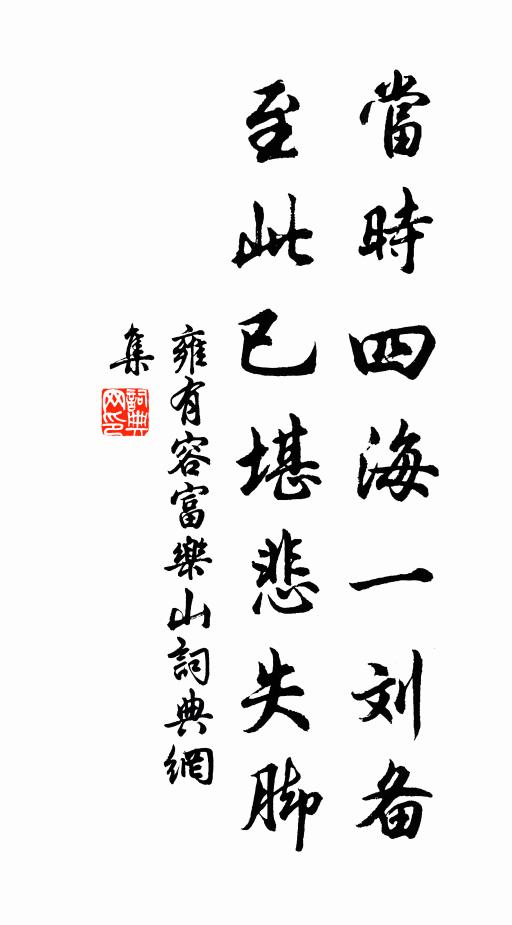 當時四海一刘备
至此已堪悲失脚
雍有容富樂山詞典網
集
詞典
网印